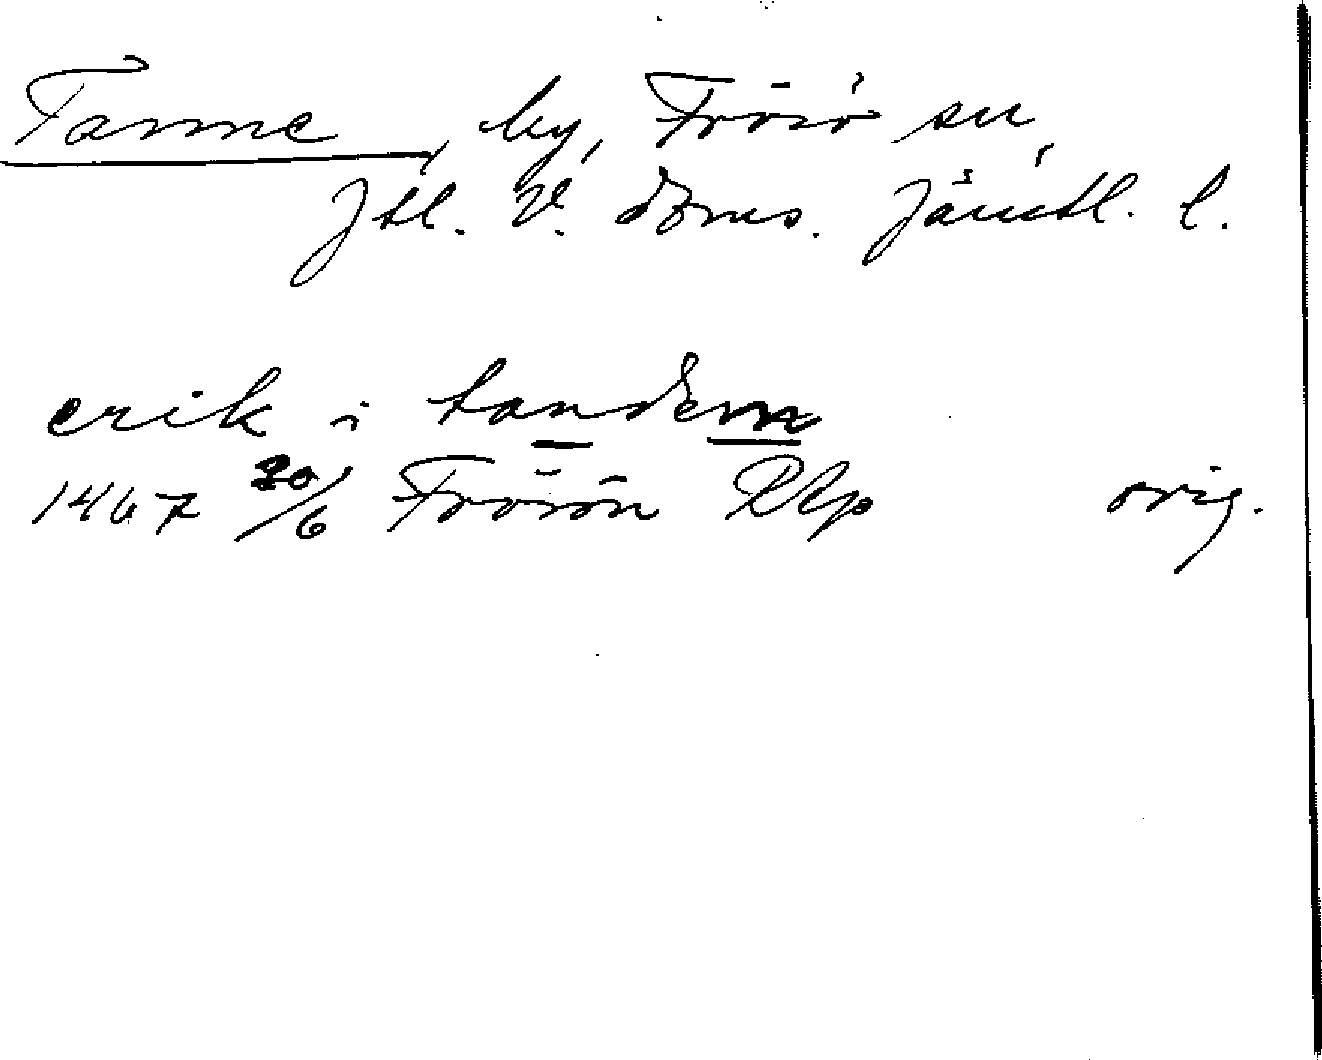 Tanne, by, Frösö sn,
Jtl. V. doms. Jämtl. l.
erik i tandem
1467 20/6 Frösön RAp orig.